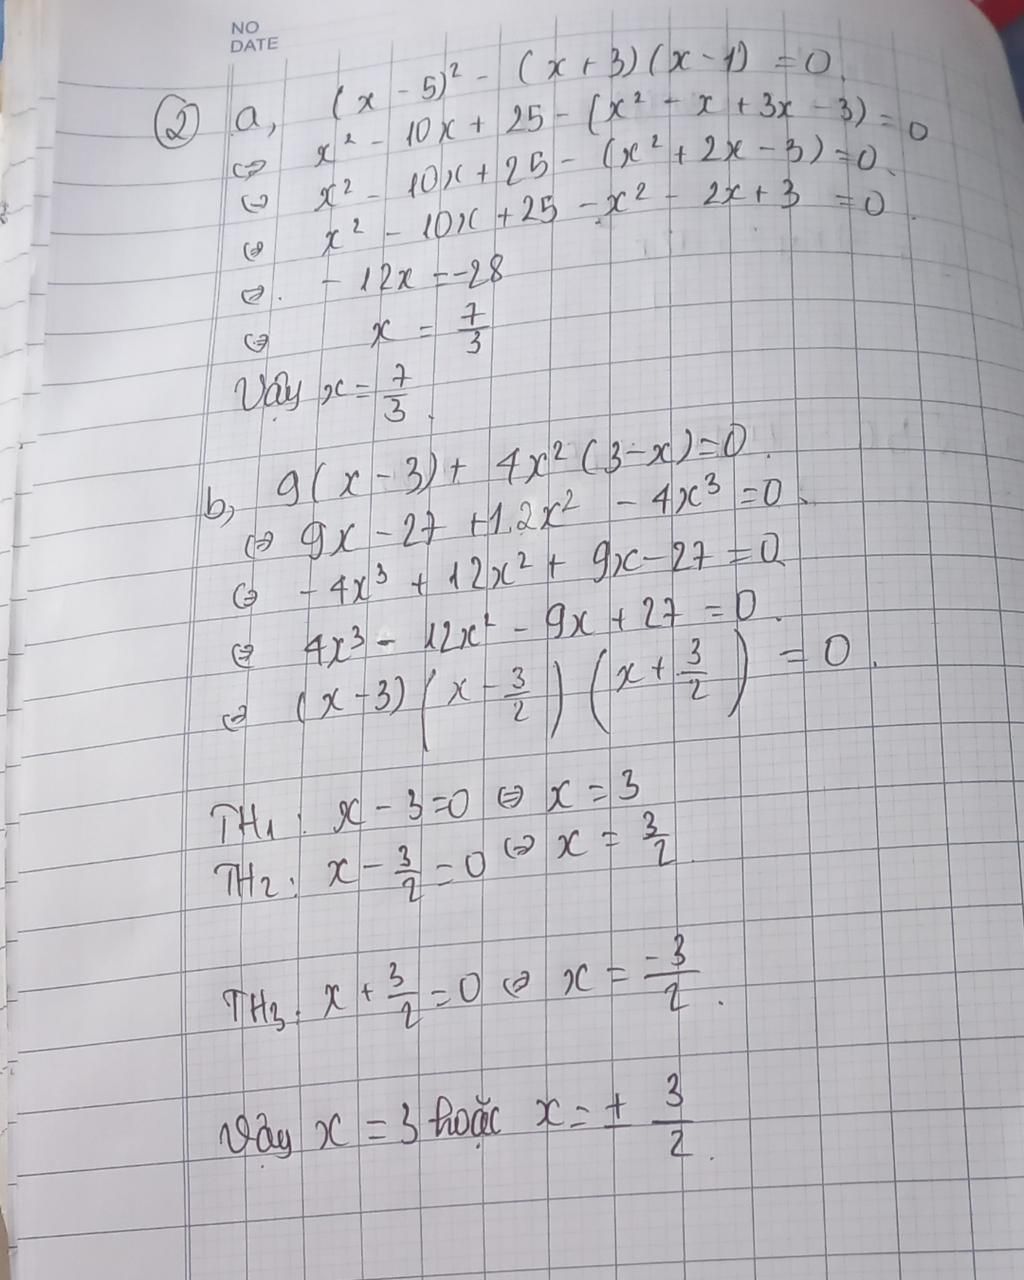 NO
DATE
② a, (x - 5)² - (x + 3)(x - 1) = 0.
⇔ x² - 10x + 25 - (x² - x + 3x - 3) = 0
⇔ x² - 10x + 25 - (x² + 2x - 3) = 0.
⇔ x² - 10x + 25 - x² - 2x + 3 = 0.
⇔. - 12x = -28
⇔ x = 7/3
Vậy x = 7/3.
b, 9(x - 3) + 4x²(3 - x) = 0.
⇔ 9x - 27 + 12x² - 4x³ = 0.
⇔ - 4x³ + 12x² + 9x - 27 = 0
⇔ 4x³ - 12x² - 9x + 27 = 0.
⇔ (x - 3)(x - 3/2)(x + 3/2) = 0.
TH1: x - 3 = 0 ⇔ x = 3
TH2: x - 3/2 = 0 ⇔ x = 3/2
TH3: x + 3/2 = 0 ⇔ x = -3/2.
Vậy x = 3 hoặc x = ± 3/2.